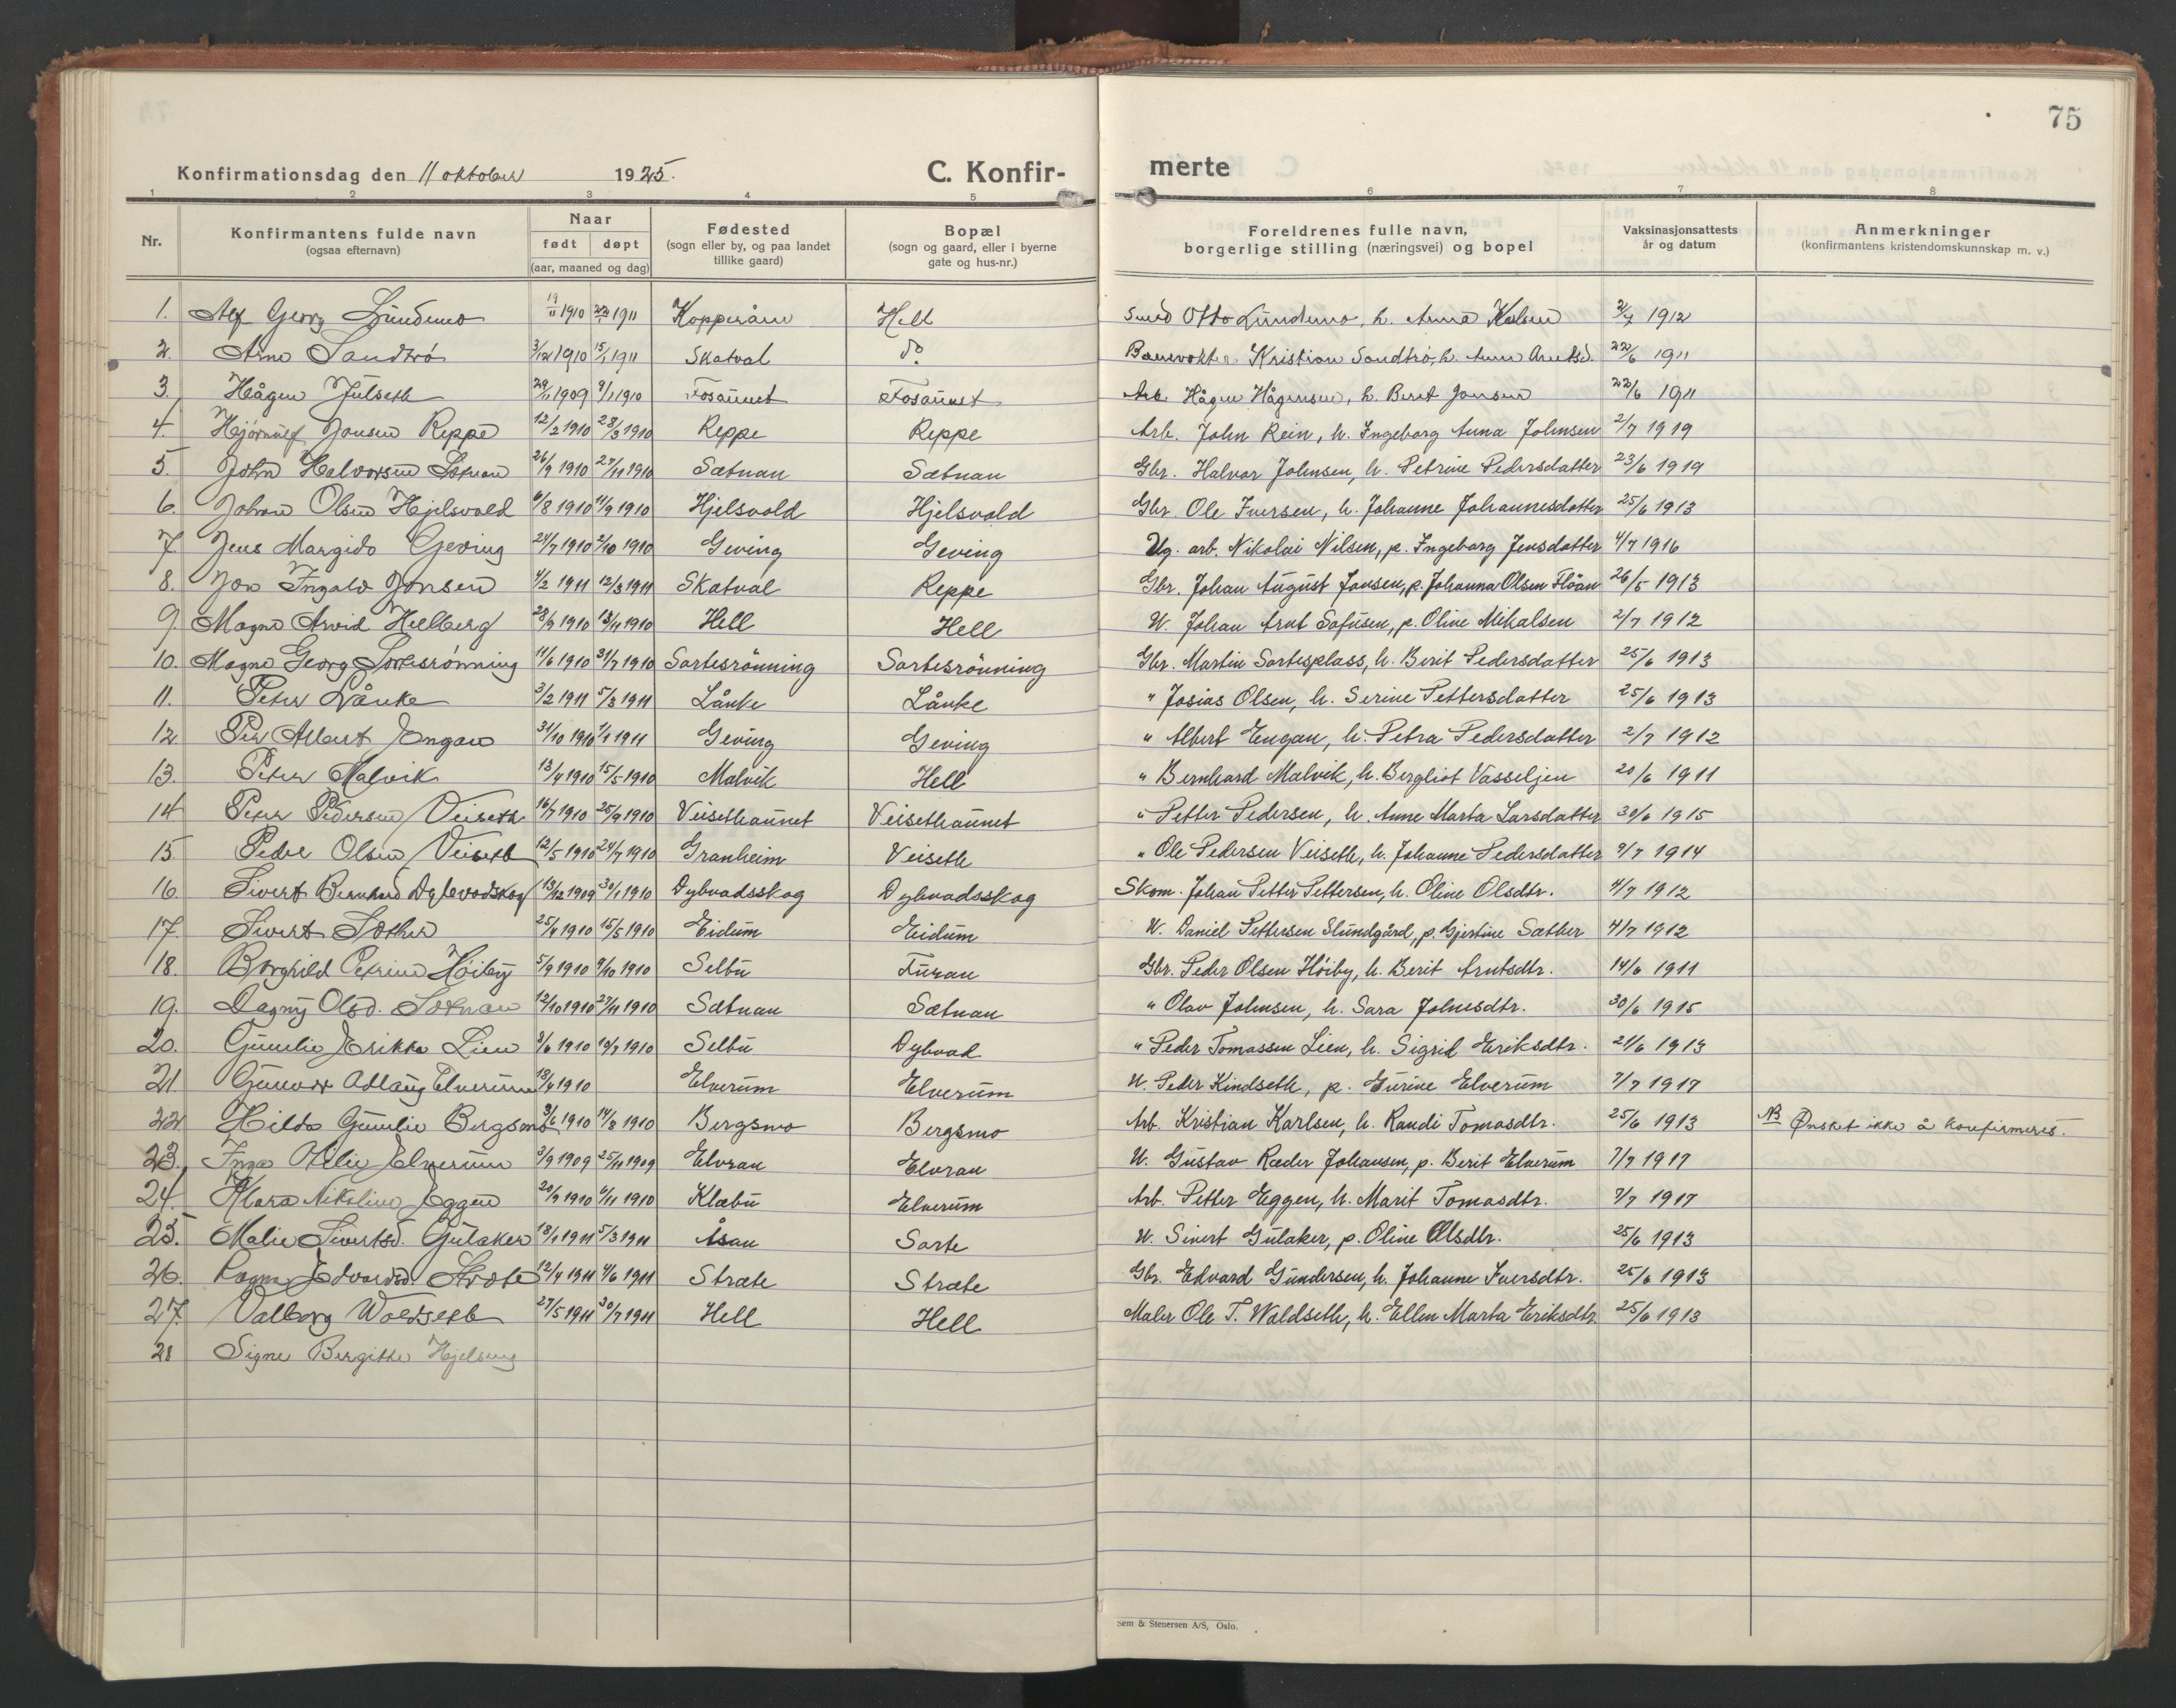 75
Konfirmationsdag den 11 oktober 1925. C. Konfir- merte
1 2 3 4 5 6 7 8
Nr. Konfirmantens fulde navn (ogsaa efternavn) Naar født døpt (aar, maaned og dag) Fødested (sogn eller by, og paa landet tillike gaard) Bopæl (sogn og gaard, eller i byerne gate og hus-nr.) Foreldrenes fulle navn, borgerlige stilling (næringsvei) og bopel Vaksinasjonsattests år og datum Anmerkninger (konfirmantens kristendomskunnskap m. v.)
1. Alf Georg Lundemo 19/11 1910 22/1 1911 Kopperåen Hell Smed Otto Lundemo, h. Anna Kolsen 2/7 1912
2. Arne Sandtrö 3/12 1910 15/1 1911 Skatval do Banevokter Kristian Sandtrö, h. Anna Arntsd. 22/6 1911
3. Hågen Julseth 29/11 1909 9/1 1910 Fosaunet Fosaunet Arb. Hågen Hågensen, h. Berit Jonsen 22/6 1911
4. Hjörnulf Jonsen Reppe 12/2 1910 28/3 1910 Reppe Reppe Arb. John Rein, h. Ingeborg Anna Johnsen 2/7 1919
5. John Halvorsen Sætnan 26/9 1910 27/11 1910 Sætnan Sætnan Gbr. Halvor Johnsen, h. Petrine Pedersdatter 23/6 1919
6. Johan Olsen Hjelsvold 6/8 1910 11/9 1910 Hjelsvold Hjelsvold Gbr. Ole Iversen, h. Johanne Johannesdatter 25/6 1913
7. Jens Margido Geving 24/7 1910 2/10 1910 Geving Geving Ug. arb. Nikolai Nilsen, p. Ingeborg Jensdatter 4/7 1916
8. Jon Ingald Jonsen 4/2 1911 12/3 1911 Skatval Reppe Gbr. Johan August Jonsen, p. Johanna Olsen Flöan 26/5 1913
9. Magne Arvid Hellberg 28/9 1910 13/11 1910 Hell Hell U. Johan Arnt Sofusen, p. Oline Mikalsen 2/7 1912
10. Magne Georg Sortesrönning 11/6 1910 31/7 1910 Sartesrönning Sartesrönning Gbr. Martin Sartesplass, h. Berit Pedersdatter 25/6 1913
11. Peter Lånke 3/2 1911 5/3 1911 Lånke Lånke " Josias Olsen, h. Serine Pettersdatter 25/6 1913
12. Per Albert Engan 31/10 1910 1/1 1911 Geving Geving " Albert Engan, h. Petra Pedersdatter 2/7 1912
13. Peter Malvik 13/4 1910 15/5 1910 Malvik Hell " Bernhard Malvik, h. Bergliot Vasseljen 20/6 1911
14 Peter Pedersen Veiseth 16/7 1910 25/9 1910 Veisethaunet Veisethaunet " Petter Pedersen, h. Anne Marta Larsdatter 30/6 1915
15. Peder Olsen Veiseth 12/5 1910 24/7 1910 Granheim Veiseth " Ole Pedersen Veiseth, h. Johanne Pedersdatter 9/7 1914
16. Sivert Bernhard Dybvadskog 13/12 1909 30/1 1910 Dybvadsskog Dybvadsskog Skom. Johan Petter Pettersen, h. Oline Olsdtr. 4/7 1912
17. Sivert Sæther 25/4 1910 15/5 1910 Eidum Eidum U. Daniel Pettersen Slundgård, p. Gjertine Sæther 4/7 1912
18. Borghild Petrine Höiby 5/9 1910 9/10 1910 Selbu Furan Gbr. Peder Olsen Höiby, h. Berit Arntsdtr. 14/6 1911
19. Dagny Olsd. Sætnan 12/10 1910 27/11 1910 Sætnan Sætnan " Olav Johnsen, h. Sara Johnsdtr. 30/6 1915
20. Gunelie Erikka Lien 3/6 1910 10/7 1910 Selbu Dybvad " Peder Tomassen Lien, h. Sigrid Eriksdtr. 21/6 1913
21. Gunvor Adlaug Elverum 13/4 1910 Elverum Elverum U. Peder Kindseth, p. Gurine Elverum 7/7 1917
22 Hilda Gunelie Bergsmo 3/6 1910 14/8 1910 Bergsmo Bergsmo Arb. Kristian Karlsen, h. Randi Tomasdtr. 25/6 1913 NB Ønsket ikke å konfirmeres.
23. Inga Otelie Elverum 3/9 1909 25/11 1909 Elvran Elvran U. Gustav Ræder Johansen, p. Berit Elverum 7/7 1917
24. Klara Nikoline Eggen 20/9 1910 6/11 1910 Klæbu Elverum Arb. Petter Eggen, h. Marit Tomasdtr. 7/7 1917
25. Malie Sivertsd. Gulaker 18/1 1911 5/3 1911 Åsan Sarte U. Sivert Gulaker, p. Oline Olsdtr. 25/6 1913
26. Ragna Edvardsd. Stræte 12/4 1911 4/6 1911 Stræte Stræte Gbr. Edvard Gundersen, h. Johanne Iversdtr. 25/6 1913
27. Valborg Woldseth 27/5 1911 30/7 1911 Hell Hell Maler Ole T. Waldseth, h. Ellen Marta Eriksdtr. 25/6 1913
28 Signe Bergitte
Sem & Stenersen A/S, Oslo.